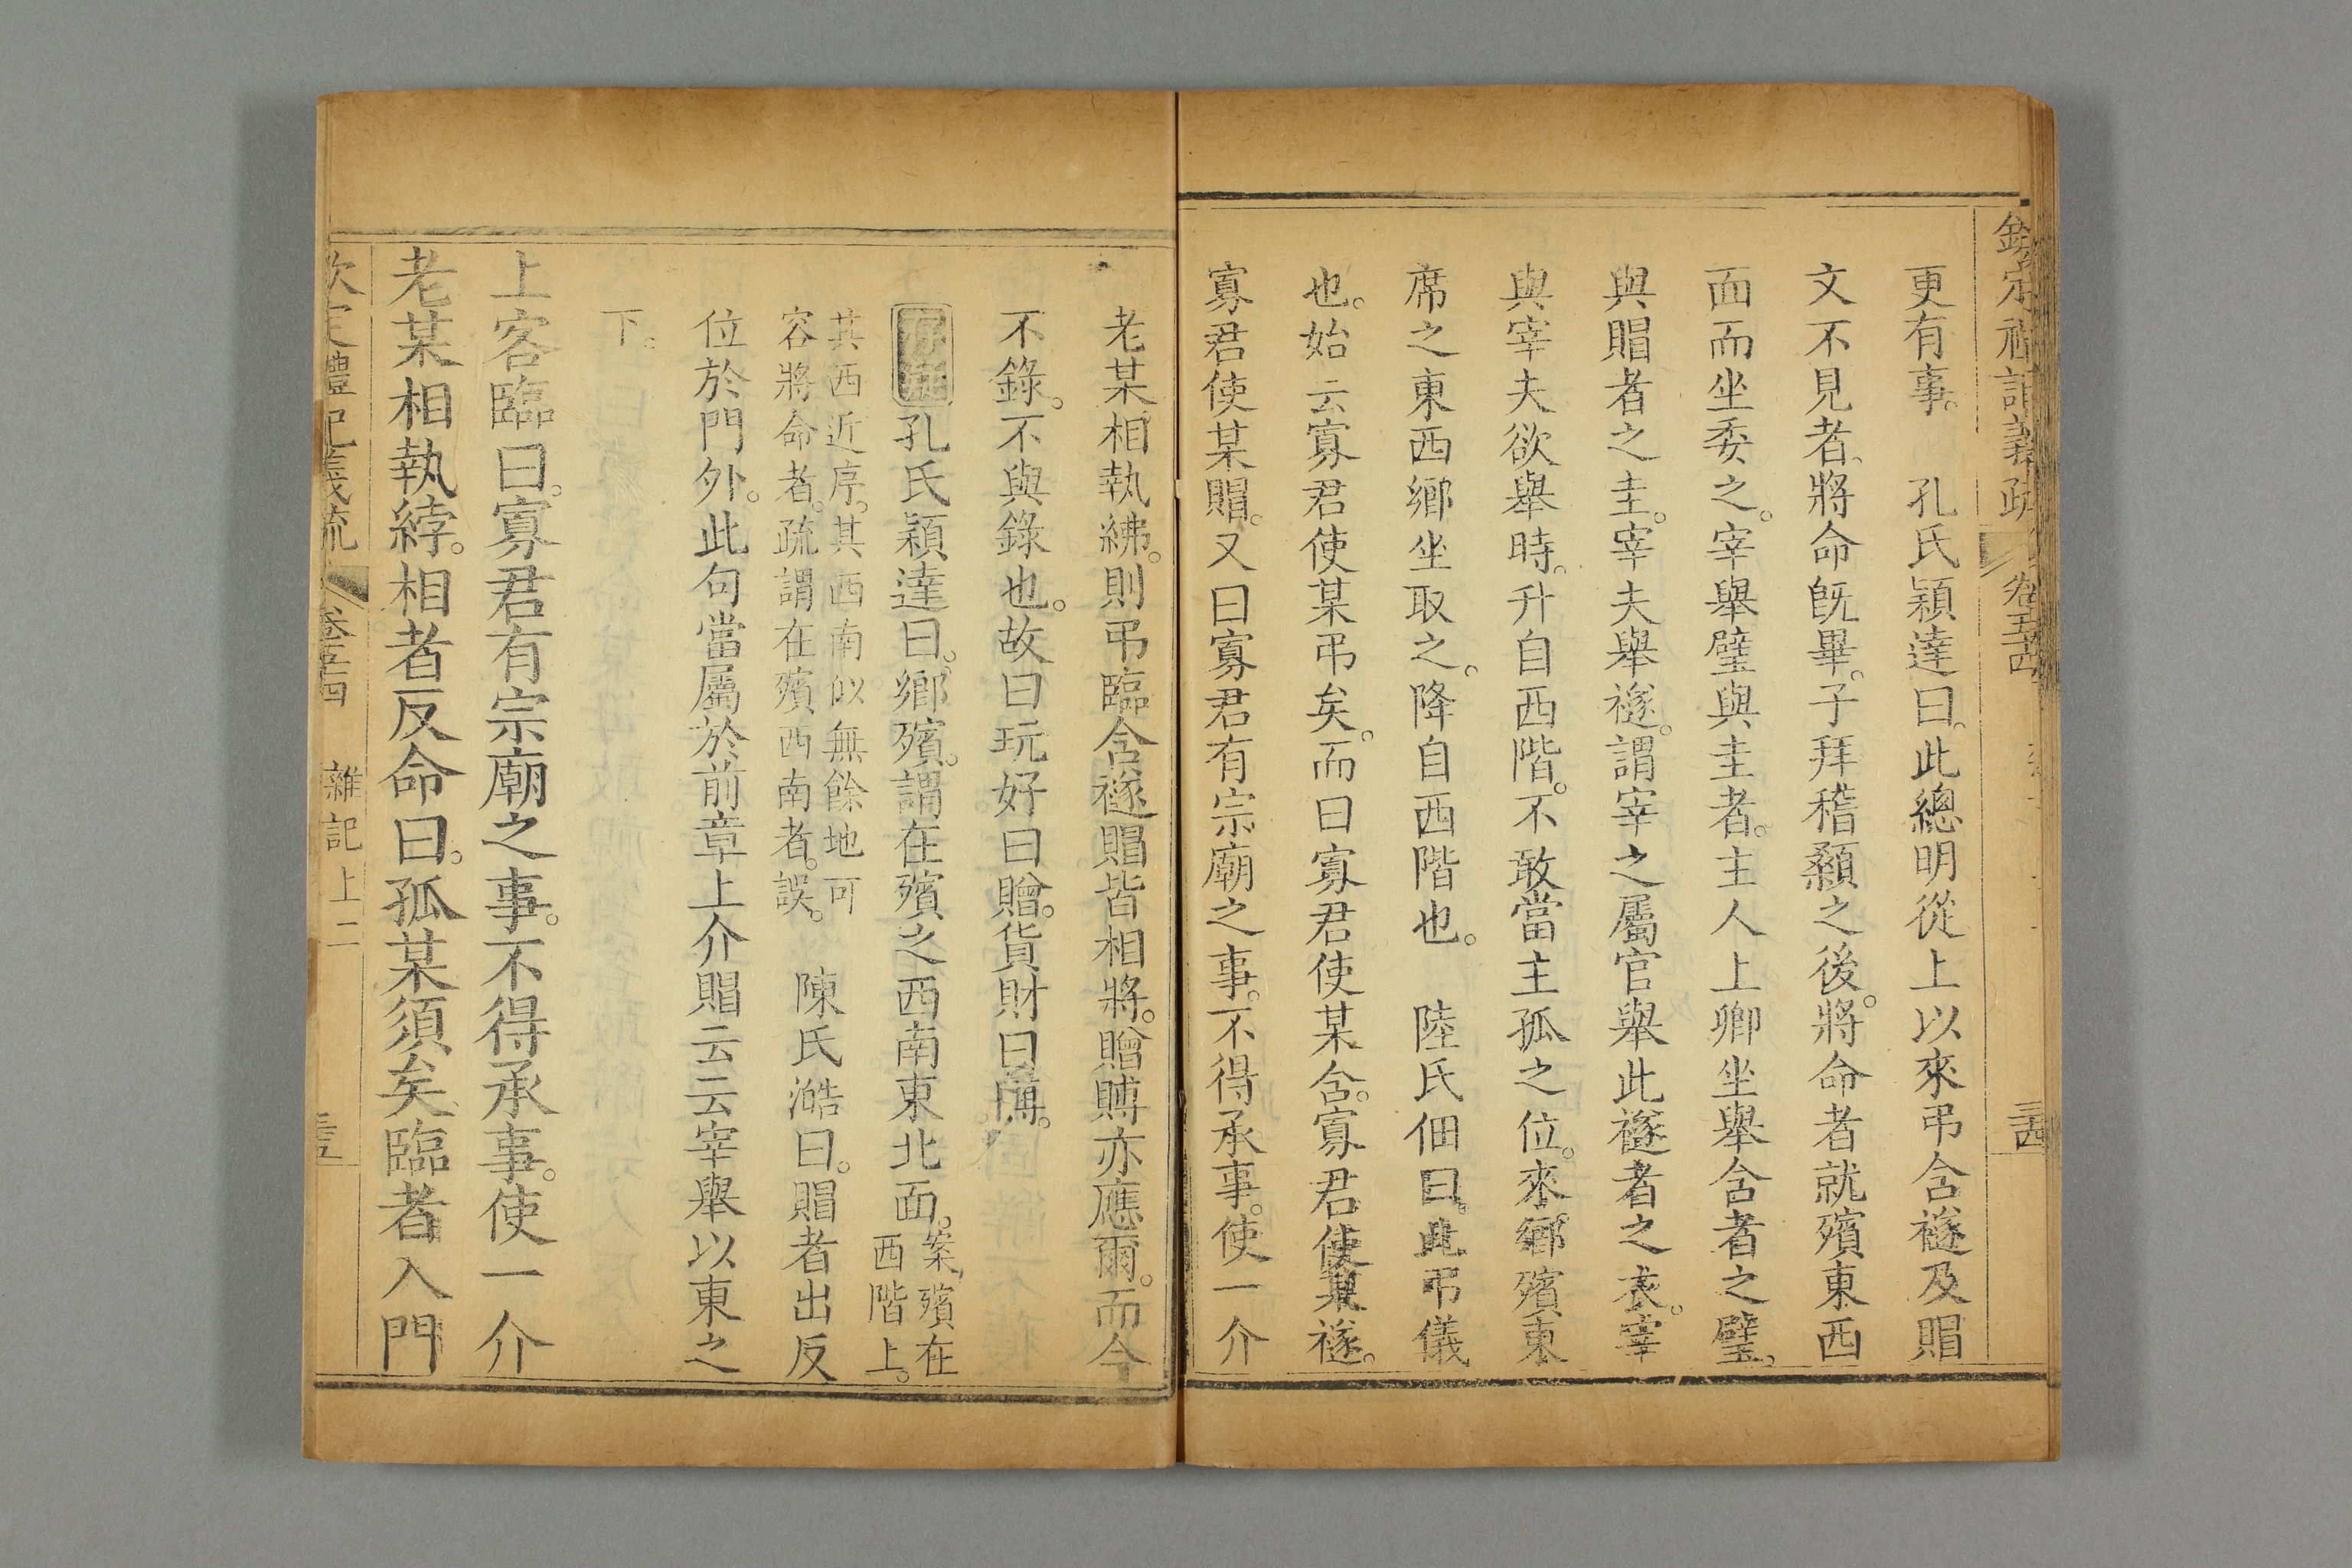 欽定禮記義疏 卷五十四 三十四
更有事。 孔氏穎達曰。此總明從上以來弔含襚及賵
文不見者、將命旣畢。子拜稽顙之後。將命者就殯東西
面而坐委之。宰舉璧與圭者。主人上卿坐舉含者之璧。
與賵者之圭。宰夫舉襚。謂宰之屬官舉此襚者之衣。宰
與宰夫欲舉時。升自西階。不敢當主孤之位。來鄉殯東
席之東西鄉坐取之。降自西階也。 陸氏佃曰。此弔儀
也。始云寡君使某弔矣。而曰寡君使某含。寡君使某襚。
寡君使某賵。又曰寡君有宗廟之事。不得承事。使一介
老某相執紼。則弔臨含襚賵皆相將。贈賻亦應爾。而今
不錄。不與錄也。故曰玩好曰贈。貨財曰賻。
孔氏穎達曰。鄉殯。謂在殯之西南東北面。案、殯在
西階上。
其西近序。其西南似無餘地可
容將命者。疏謂在殯西南者。誤。 陳氏澔曰。賵者出反
位於門外。此句當屬於前章上介賵云云宰舉以東之
下。
上客臨曰。寡君有宗廟之事。不得承事。使一介
老某相執綍。相者反命曰。孤某須矣、臨者入門
欽定禮記義疏 卷五十四 雜記上二 三十五